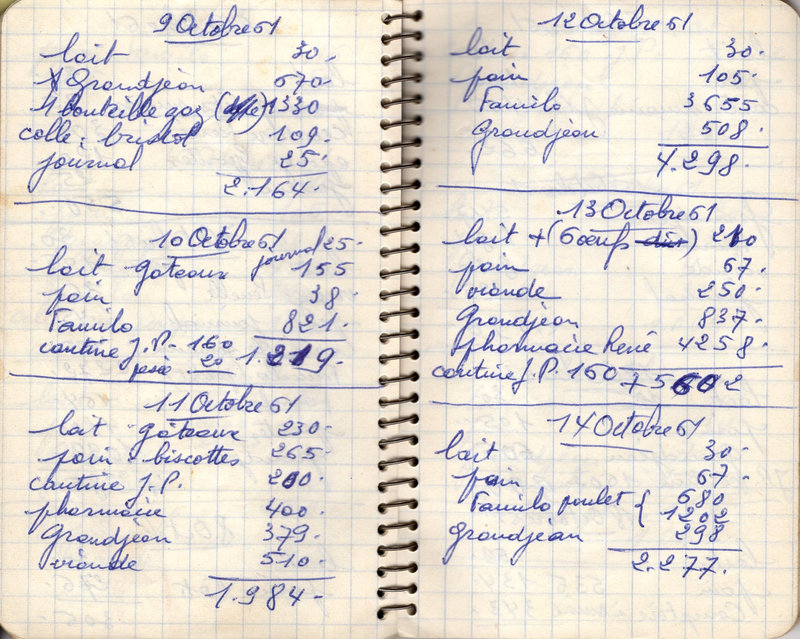 9 Octobre 61
lait 30.
Grandjean 670.
1 bouteille gaz 1330
colle, bristol 109.
journal 25.
2.164.
10 Octobre 61
journal 25.
lait gâteaux 155
pain 38.
Familo 821.
cantine J.P. 160
20 1.219.
11 Octobre 61
lait gâteaux 230.
pain biscottes 265.
cantine J.P. 200.
pharmacie 400.
Grandjean 379.
viande 510.
1.984.
12 Octobre 61
lait 30.
pain 105.
Familo 3655
Grandjean 508.
4.298.
13 Octobre 61
lait + (6 œufs) 210
pain 67.
viande 250.
Grandjean 837.
pharmacie René 4258.
cantine J.P. 160 + 5602
14 Octobre 61
lait 30.
pain 67.
Familo poulet { 680
1202
Grandjean 298
2.277.